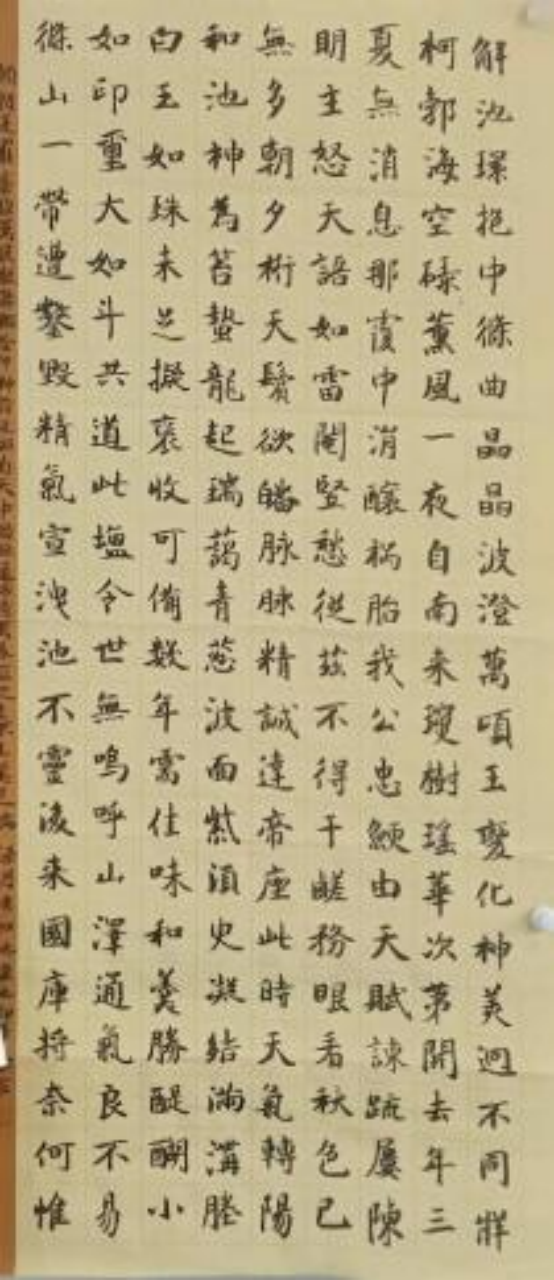 解池環抱中條曲晶晶波澄萬頃玉變化神異迥不同牂
柯郭海空碌薰風一夜自南来瓊樹瑶華次第開去年三
夏無消息那霞中消釀禍胎我公忠鯁由天賦諫疏屡陳
明主怒天語如雷閽竖愁從茲不得干鹾務眼看秋色已
無多朝夕祈天鬓欲皤脉脉精誠達帝座此時天氣轉陽
和池神為荅蟄龍起瑞藹青葱波面紫須臾凝结滿溝塍
白玉如珠未足擬裒收可備数年需佳味和羹勝醍醐小
如印璽大如斗共道此塩今世無嗚呼山澤通氣良不易
條山一帶遭鑿毀精氣宣洩池不靈後来國庫将奈何惟